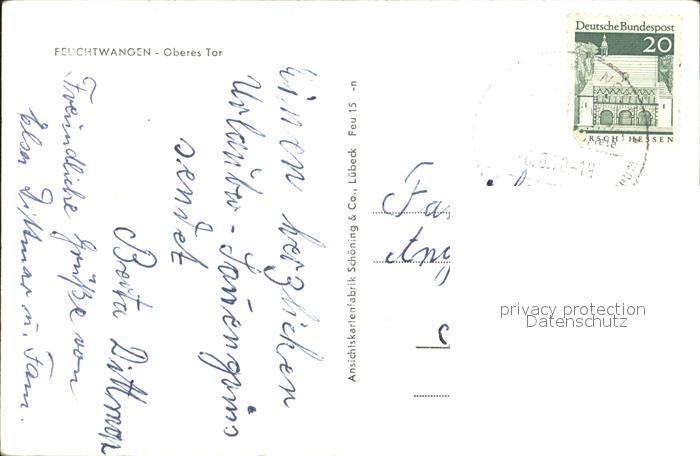 FEUCHTWANGEN - Oberes Tor
Einen herzlichen
Urlauber - Sonnengruss
sendet
Berta Dittmar
Freundliche Grüße von
Elsa Dittmar u. Fam.
Ansichtskartenfabrik Schöning & Co., Lübeck Feu 15 -n
Deutsche Bundespost
20
RSCH/HESSEN
70-19
Fa
Ang
privacy protection
Datenschutz